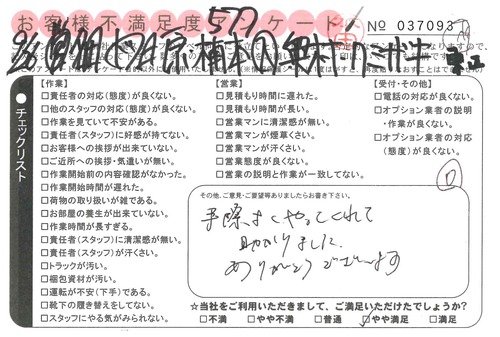 お客様不満足度アンケート
No 037093
チェックリスト
【作業】
□責任者の対応(態度)が良くない。
□他のスタッフの対応(態度)が良くない。
□作業を見ていて不安がある。
□責任者(スタッフ)に好感が持てない。
□お客様への挨拶が出来ていない。
□ご近所への挨拶・気遣いが無い。
□作業開始前の内容確認がなかった。
□作業開始時間が遅れた。
□荷物の取り扱いが雑である。
□お部屋の養生が出来ていない。
□作業時間が長すぎる。
□責任者(スタッフ)に清潔感が無い。
□責任者(スタッフ)が汗くさい。
□トラックが汚い。
□梱包資材が汚い。
□運転が不安(下手)である。
□靴下の履き替えをしてない。
□スタッフにやる気がみられない。
【営業】
□見積もり時間に遅れた。
□見積もり時間が長い。
□営業マンに清潔感が無い。
□営業マンが煙草くさい。
□営業マンが汗くさい。
□営業態度が良くない。
□営業の説明と作業が一致してない。
【受付・その他】
□電話の対応が良くない。
□オプション業者の説明
・作業が良くない。
□オプション業者の対応
(態度)が良くない。
その他、ご意見・ご要望等ありましたらお書き下さい。
手際よくやってくれて
助かりました。
ありがとうございます
☆当社をご利用いただきまして、ご満足いただけたでしょうか?
□不満 □やや不満 □普通 □やや満足 □満足